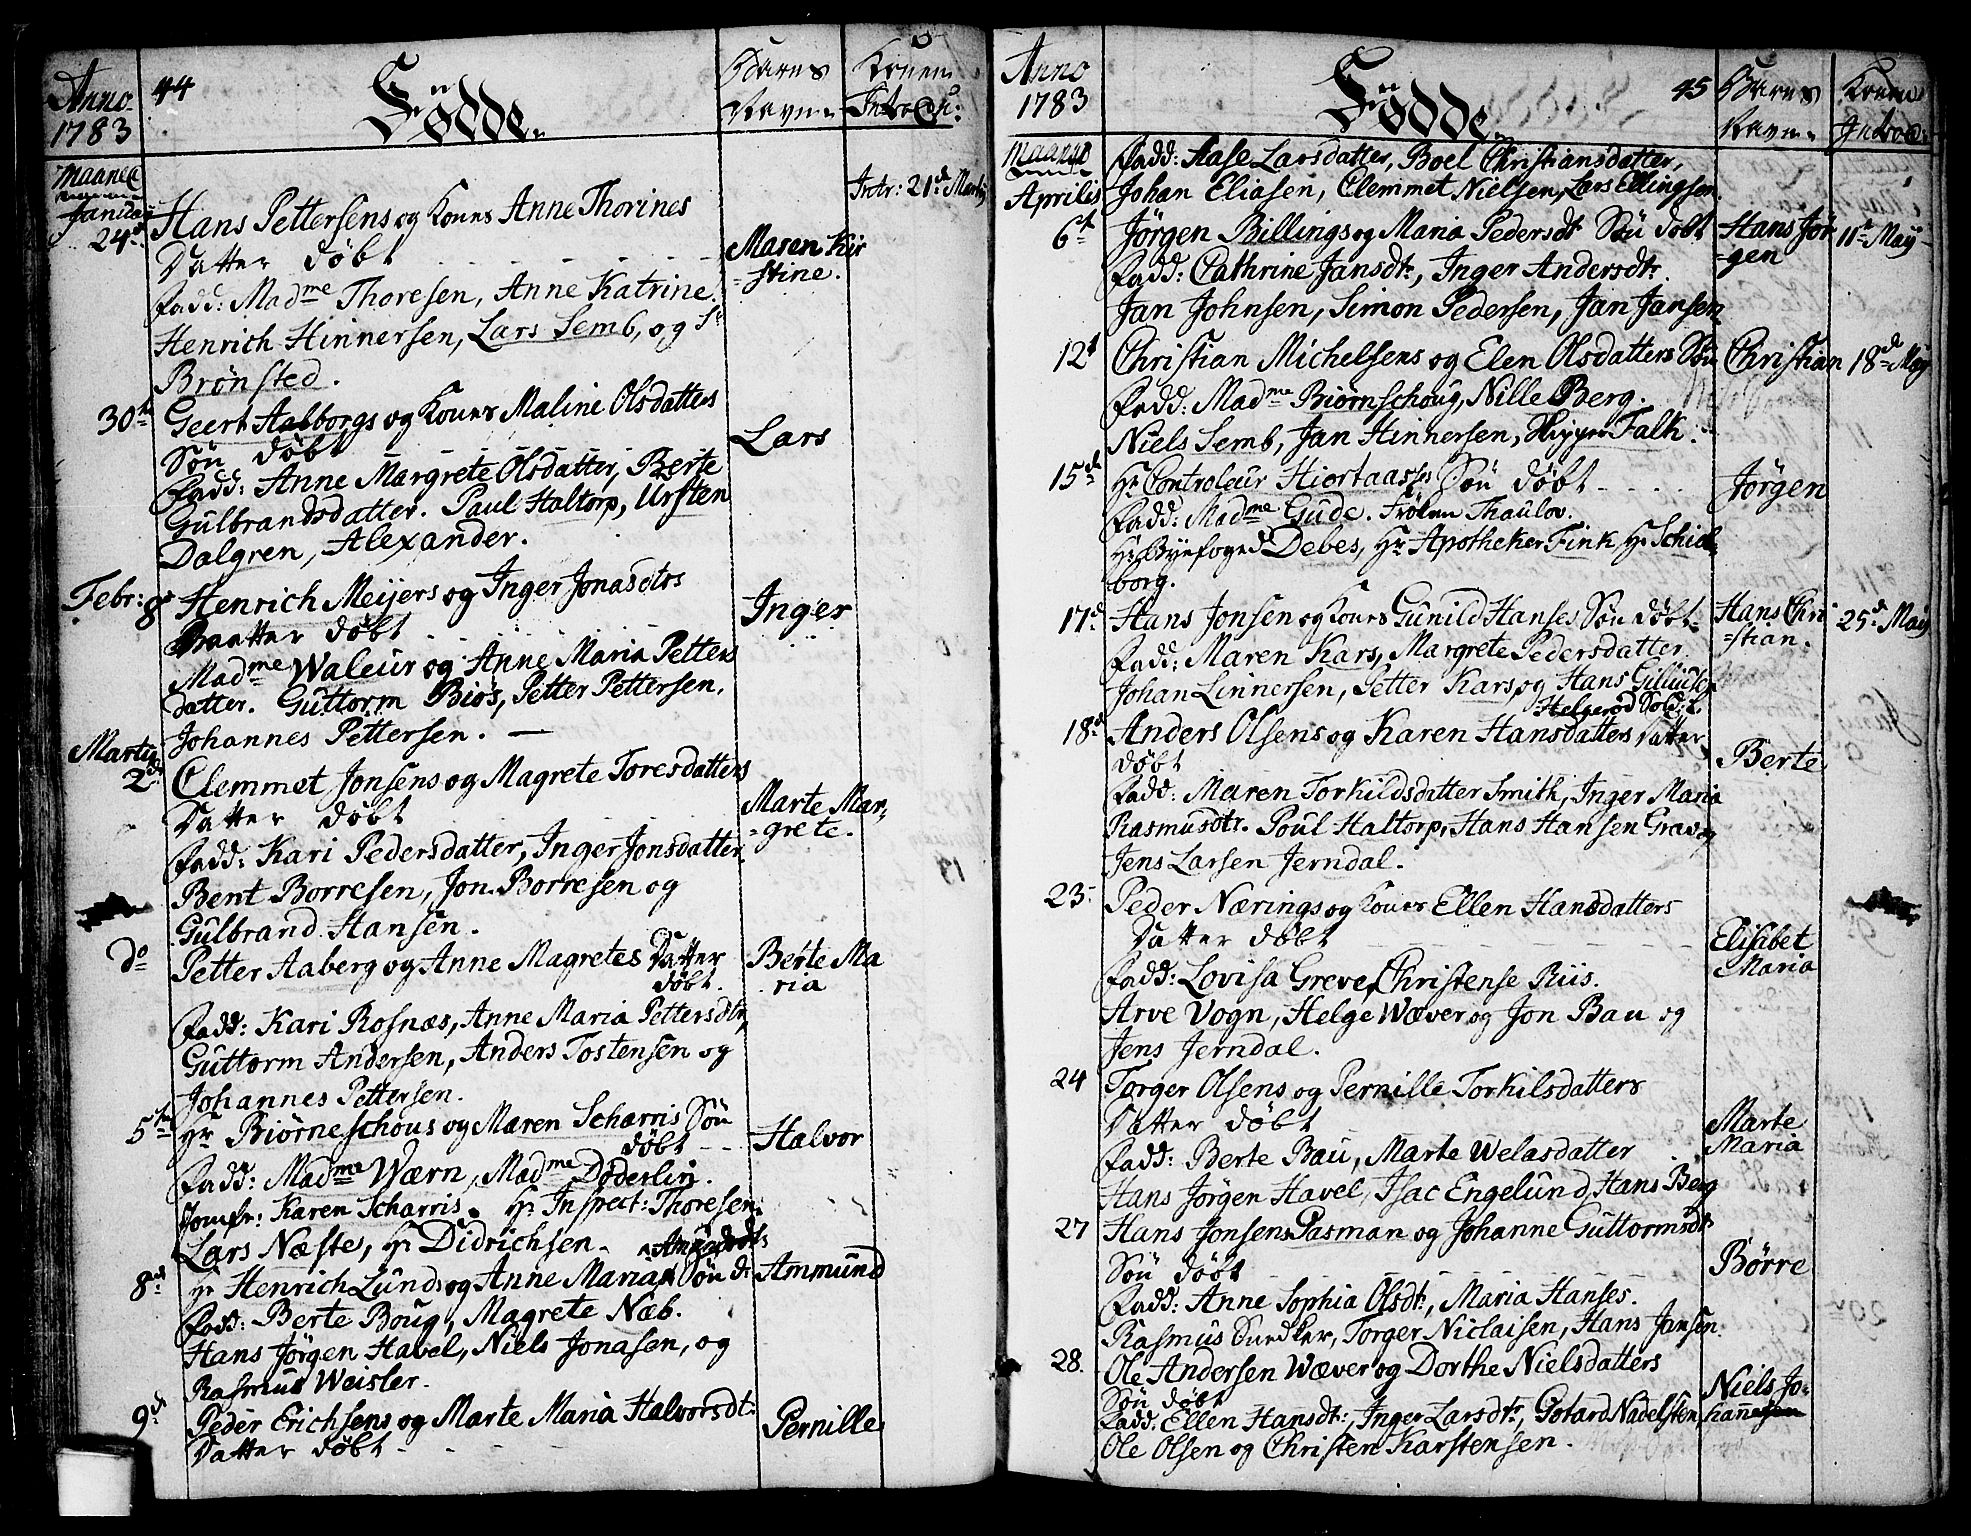 Anno 1783
44
Födde.
Barns Navn.
Konens Introdu:
Maanet
Januarij
24de
Hans Pettersens og Kones Anne Thorines
Datter döbt
Maren Kir
=stine.
Intr: 21de Martij
Fadd: Madme Thoresen, Anne Katrine
Henrich Hinnersen, Lars Semb, og Sr
Brönsted.
30te
Geert Aalborgs og Kones Maline Olsdatters
Sön döbt
Lars
Fadd: Anne Margrete Olsdatter, Berte
Gulbrandsdatter. Paul Haltorp, Ursten
Dalgren, Alexander.
Febr: 8de
Henrich Meijers og Inger Jonasdtrs
Daatter döbt
Inger
Madme Waleur og Anne Maria Petters
datter. Guttorm Biös, Petter Pettersen,
Johannes Pettersen.
Martij
2de
Clemmet Jonsens og Magrete Toresdatters
Datter döbt
Marte Mar-
=grete.
Fadd: Kari Pedersdatter, Inger Jonsdatter
Bent Borresen, Jon Borresen og
Gulbrand Hansen.
do
Petter Aaberg og Anne Magretes Datter
döbt.
Berte Ma
ria
Fadd: Kari Rosnæs, Anne Maria Pettersdtr,
Guttorm Andersen, Anders Tostensen og
Johannes Pettersen.
5te
Hr Biörneschous og Maren Scharris Sön
döbt
Halvor
Fadd: Madme Wærn, Madme Döderlin.
Jomfr: Karen Scharris. Hr Inspect: Thoresen.
Lars Næste, Hr Didrichsen.
8de
Amundsdtrs
Hr Henrich Lunds og Anne Maria Sön d:
Ammund
Fadd: Berte Boug, Magrete Næb.
Hans Jörgen Havel, Niels Jonasen, og
Rasmus Weisler.
9de
Peder Erichsens og Marte Maria Halvorsdt:
Datter döbt
Pernille
Anno 1783
Födde.
45
Barns Navn.
Konens Introd:
Maanet
Aprilis
Fadd: Aase Larsdatter, Boel Christiansdatter,
Johan Eliasen, Clemmet Nielsen, Lars Ellingsen.
6te
Jörgen Billings og Maria Pedersdt: Sön döbt
Hans Jör
=gen
11te May
Fadd: Cathrine Jansdt:, Inger Andersdt:
Jan Johnsen, Simon Pedersen, Jan Jansen
12te
Christian Michelsens og Elen Olsdatters Sön
Christian
18de May
Fadd: Madme Biörnschoug, Nille Berg.
Niels Semb, Jan Hinnersen, Falk.
15de
Hr Controleur Hiortaass Sön döbt
Jörgen
Fadd: Madme Gude. Fröken Thaulov.
Hr Byefoged Debes, Hr Apotheker Fink Hr Schiel-
borg.
17de
Hans Jonsen og Kones Gunild Hanses Sön döbt
Hans Chri
=stian.
25de May
Fadd: Maren Kars, Margrete Pedersdatter
Johan Linnersen, Petter Kars, og Hans
Helgeröd Sold:
18de
Anders Olsens og Karen Hansdatters Datter
döbt
Berte
Fadd: Maren Torkildsdatter Smith, Inger Maria
Rasmusdtr. Poul Haltorp, Hans Hansen Grav og
Jens Larsen Jerndal.
23
Peder Nærings og Kones Ellen Hansdatters
Datter döbt
Elisabet
Maria
Fadd: Lovisa Greve, Christense Riis.
Arve Vogn, Helge Wæver og Jon Bau og
Jens Jerndal.
24
Torger Olsens og Pernille Torkilsdatters
Datter döbt
Marte
Maria
Fadd: Berte Bau, Marte Welasdatter
Hans Jörgen Havel, Isac Engelund, Hans Berg
27
Hans Jonsens Pasman og Johanne Guttormsdt:
Sön döbt
Börre
Fadd: Anne Sophia Olsdt:, Maria Hanses.
Rasmus Snedker, Torger Niclaisen, Hans Jansen
28.
Ole Andersen Wæver og Dorthe Nielsdatters
Sön döbt
Niels Jo-
hannesen
Fadd: Ellen Hansdt:, Inger Larsdt:, Gotard Nadelsten,
Ole Olsen og Christen Karstensen.